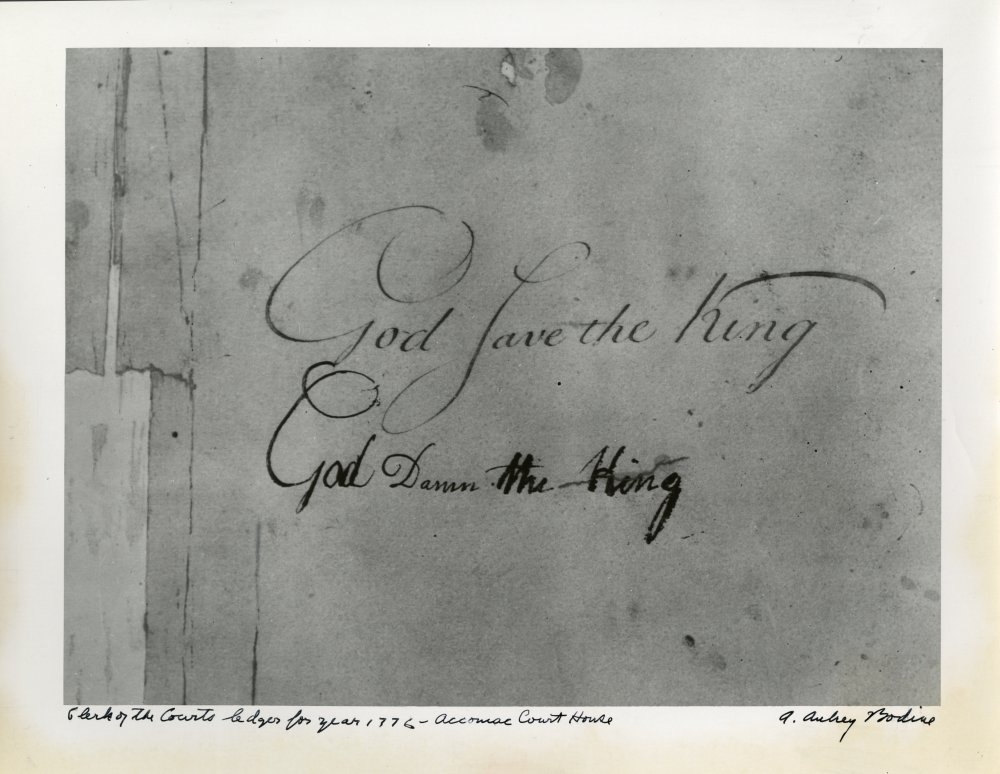 God save the King
God Damn the King
Clerk of the Courts ledger for year 1776 - Accomac Court House
A. Aubrey Bodine